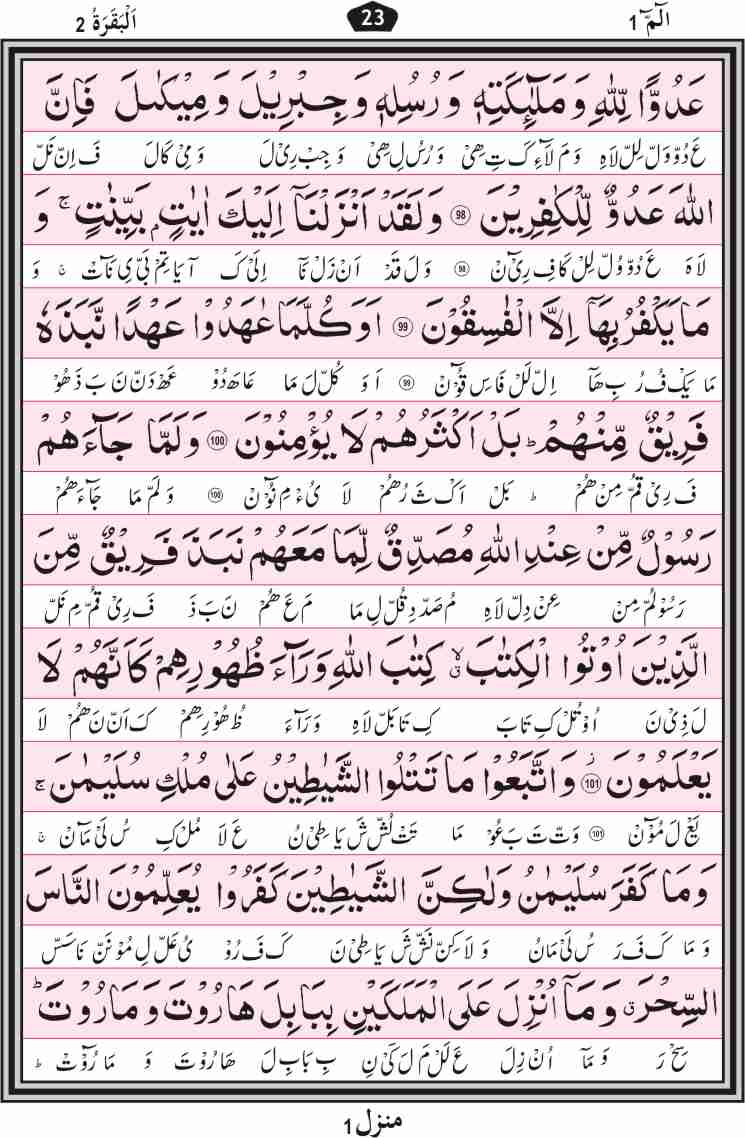 الٓمّٓ 1 23 اَلْبَقَرَةُ 2
عَدُوًّا لِّلّٰهِ وَ مَلٰٓئِكَتِهٖ وَ رُسُلِهٖ وَ جِبْرِيْلَ وَ مِيْكٰىلَ فَاِنَّ
عَ دُوْ وَلْ لِلْ لَاهِ وَ مَ لَآءِ كَ تِ هِىْ وَ رُسُ لِ هِىْ وَ جِبْ رِىْ لَ وَ مِىْ كَالَ فَ اِنْ نَلْ
اللّٰهَ عَدُوٌّ لِّلْكٰفِرِيْنَ 98 وَ لَقَدْ اَنْزَلْنَاۤ اِلَيْكَ اٰيٰتٍۭ بَيِّنٰتٍ ۚ وَ
لَاهَ عَ دُوْ وُلْ لِلْ كَافِ رِىْٓ نْ 98 وَ لَ قَدْ اَنْ زَلْ نَآ اِلَىْ كَ آ يَا تِمْ بَىْ ىِ نَآتْ ۚ وَ
مَا يَكْفُرُ بِهَاۤ اِلَّا الْفٰسِقُوْنَ 99 اَوَ كُلَّمَا عٰهَدُوْا عَهْدًا نَّبَذَهٗ
مَا يَكْ فُ رُ بِ هَآ اِلْ لَلْ فَاسِ قُوْٓنْ 99 اَ وَ كُلْ لَ مَا عَاهَ دُوْ عَهْ دَنْ نَ بَ ذَ هُوْ
فَرِيْقٌ مِّنْهُمْ ؕ بَلْ اَكْثَرُهُمْ لَا يُؤْمِنُوْنَ 100 وَ لَمَّا جَآءَهُمْ
فَ رِىْ قُمْ مِنْ هُمْ ؕ بَلْ اَكْ ثَ رُهُمْ لَا يُءْ مِ نُوْٓنْ 100 وَ لَمْ مَا جَآءَ هُمْ
رَسُوْلٌ مِّنْ عِنْدِ اللّٰهِ مُصَدِّقٌ لِّمَا مَعَهُمْ نَبَذَ فَرِيْقٌ مِّنَ
رَسُوْلُمْ مِنْ عِنْ دِلْ لَاهِ مُ صَدْ دِ قُلْ لِ مَا مَ عَ هُمْ نَ بَ ذَ فَ رِىْ قُمْ مِ نَلْ
الَّذِيْنَ اُوْتُوا الْكِتٰبَ ۙۗ كِتٰبَ اللّٰهِ وَرَآءَ ظُهُوْرِهِمْ كَاَنَّهُمْ لَا
لَ ذِىْ نَ اُوْ تُلْ كِ تَابَ كِ تَا بَلْ لَاهِ وَ رَآءَ ظُ هُوْ رِ هِمْ كَ اَنْ نَ هُمْ لَا
يَعْلَمُوْنَ ؗ 101 وَ اتَّبَعُوْا مَا تَتْلُوا الشَّيٰطِيْنُ عَلٰى مُلْكِ سُلَيْمٰنَ ۚ
يَعْ لَ مُوْٓنْ 101 وَتْ تَ بَ عُوْ مَا تَتْ لُشْ شَ يَا طِىْ نُ عَ لَا مُلْ كِ سُ لَىْ مَآنْ ۚ
وَ مَا كَفَرَ سُلَيْمٰنُ وَ لٰكِنَّ الشَّيٰطِيْنَ كَفَرُوْا يُعَلِّمُوْنَ النَّاسَ
وَ مَا كَ فَ رَ سُ لَىْ مَانُ وَ لَا كِنْ نَشْ شَ يَا طِىْ نَ كَ فَ رُوْ يُ عَلْ لِ مُوْ نَنْ نَا سَسْ
السِّحْرَ ۗ وَ مَاۤ اُنْزِلَ عَلَى الْمَلَكَيْنِ بِبَابِلَ هَارُوْتَ وَ مَارُوْتَ ؕ
سِحْ رَ وَ مَآ اُنْ زِلَ عَ لَلْ مَ لَ كَىْ نِ بِ بَابِ لَ هَا رُوْتَ وَ مَا رُوْٓتْ ؕ
منزل 1